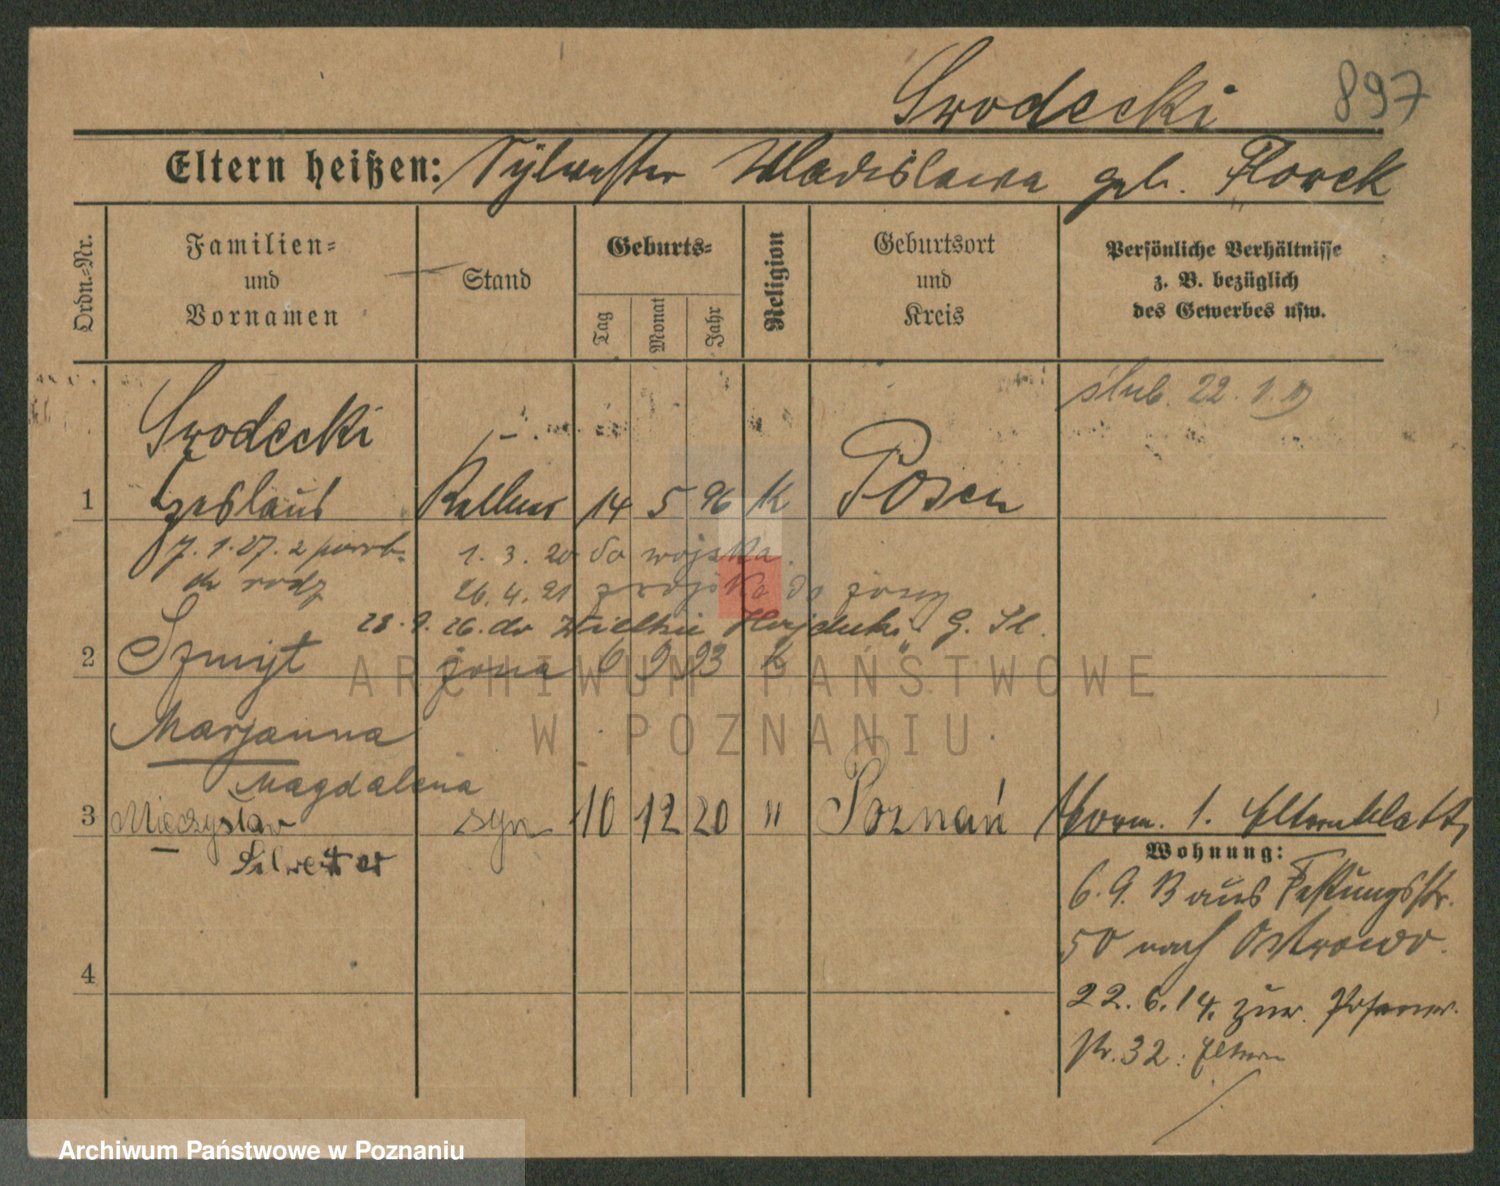 Srodecki 897
Eltern heißen: Sylwester Wladislawa geb. Florek
Ordn.=Nr.
Familien=
und
Vornamen
Stand
Geburts=
Tag
Monat
Jahr
Religion
Geburtsort
und
Kreis
Persönliche Verhältnisse
z. B. bezüglich
des Gewerbes usw.
ślub. 22. 1.
Srodecki
1 Zeslaus Kellner 14 5 96 K Posen
7. 1. 27. z powrb.
do rodz
1. 3. 20 do wojska.
26. 4. 21 z wojska do żony
28. 9. 26. do Wielkie Hajduki G. Śl.
2 Szmyt żona 6 9 93 K
Marjanna
Magdalena
3 Mieczysław syn 10 12 20 " Poznań Vorm. 1. Elternblatt,
Silwester
Wohnung:
6. 9. 13 aus Festungsstr.
50 nach Ostrowo.
22. 6. 14. zur. Posener.
str. 32: Eltern
4
ARCHIWUM PAŃSTWOWE
W POZNANIU
Archiwum Państwowe w Poznaniu